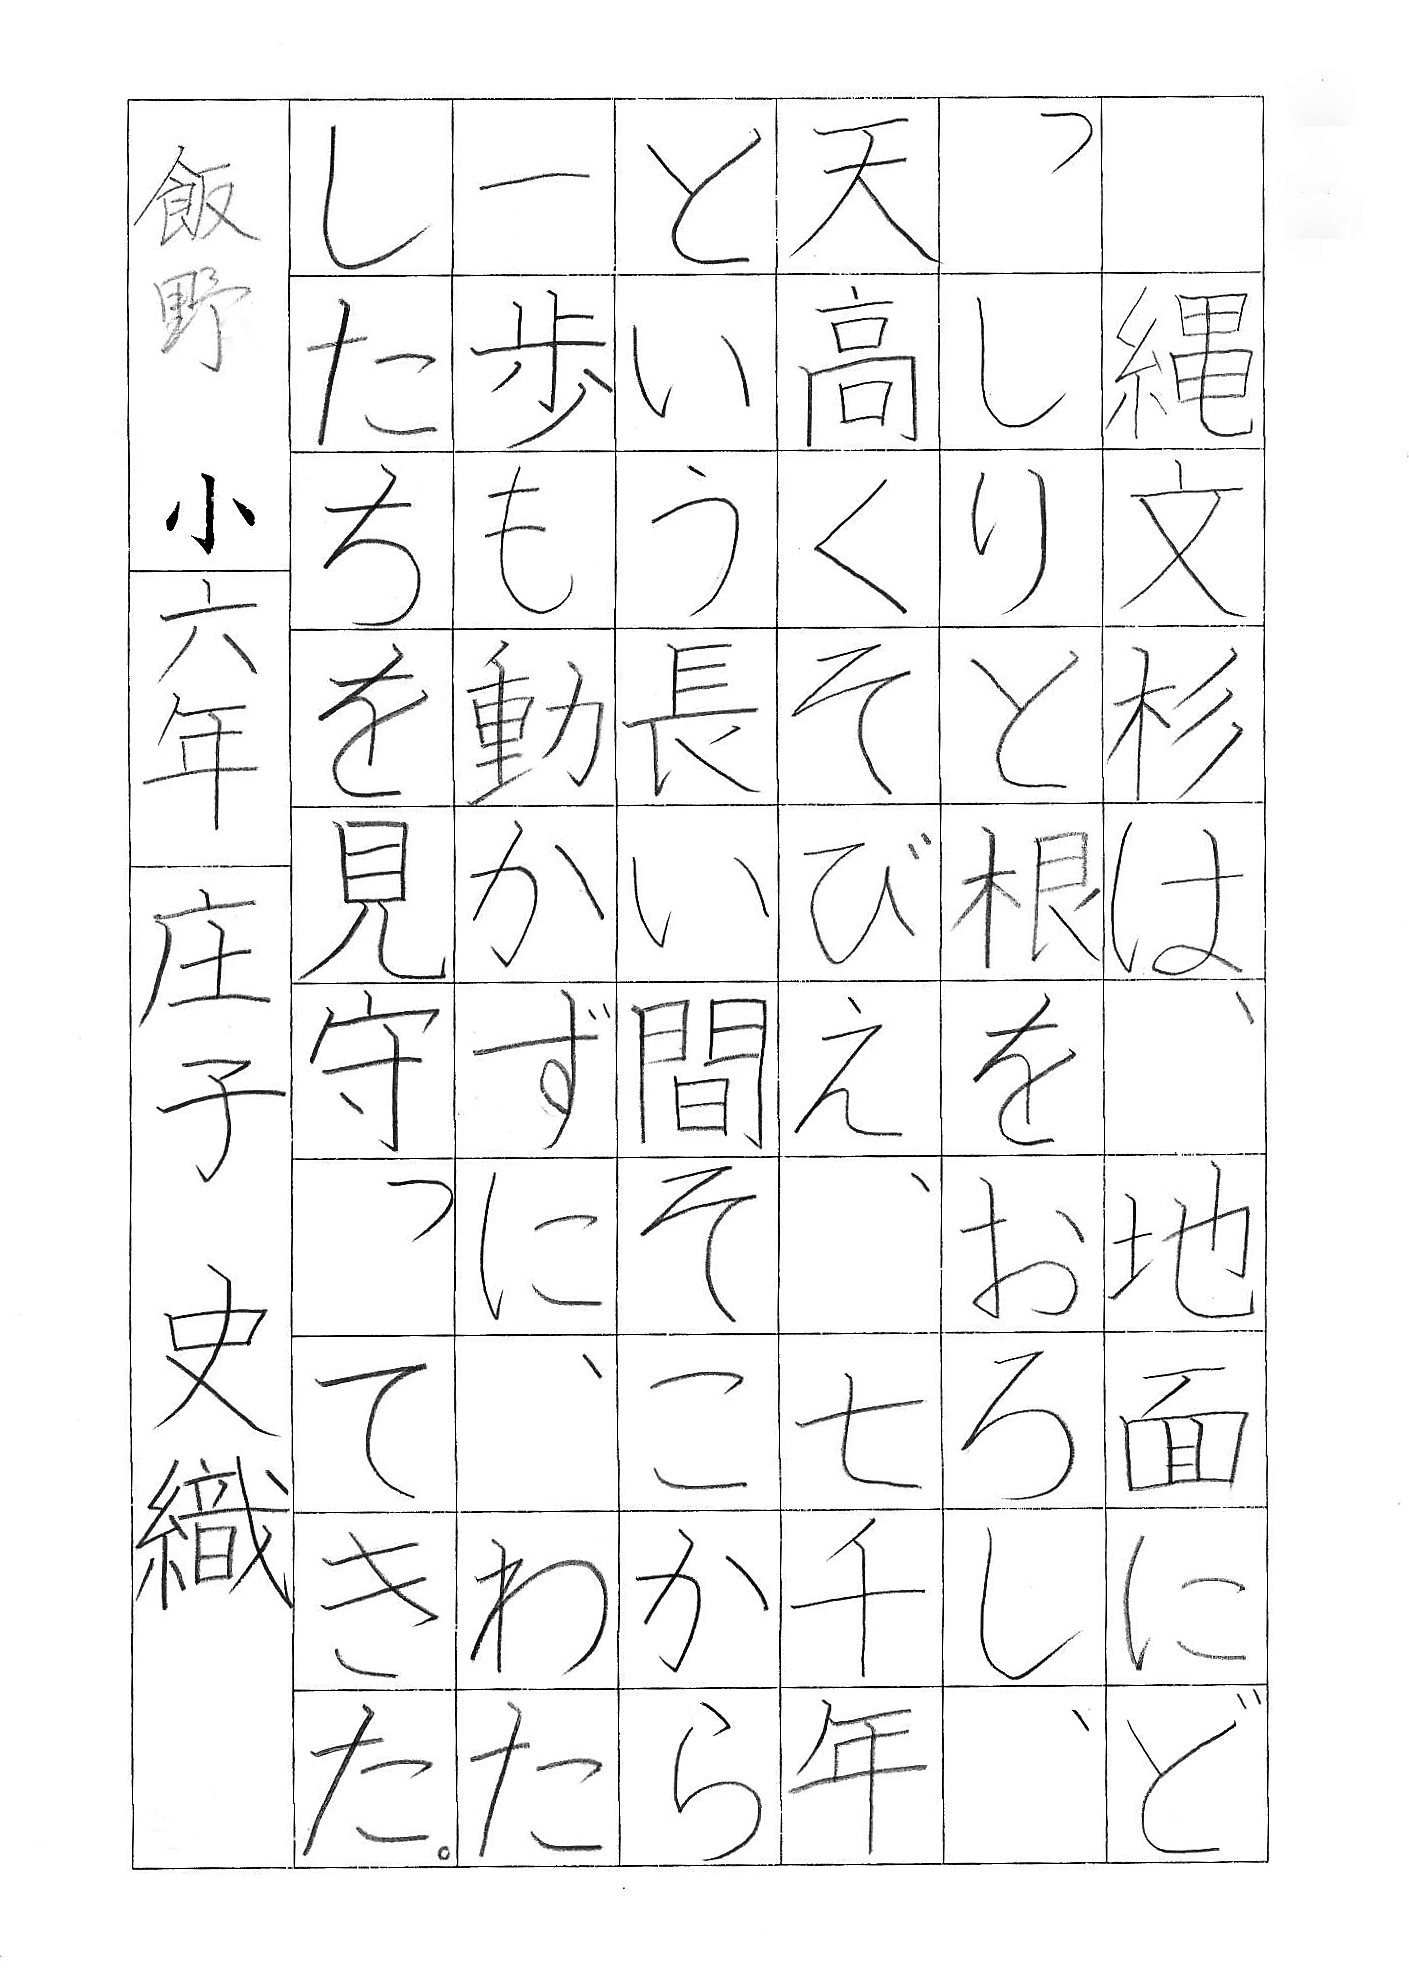 縄文杉は、地面にど
っしりと根をおろし、
天高くそびえ、七千年
という長い間そこから
一歩も動かずに、わた
したちを見守ってきた。
飯野小六年庄子史織